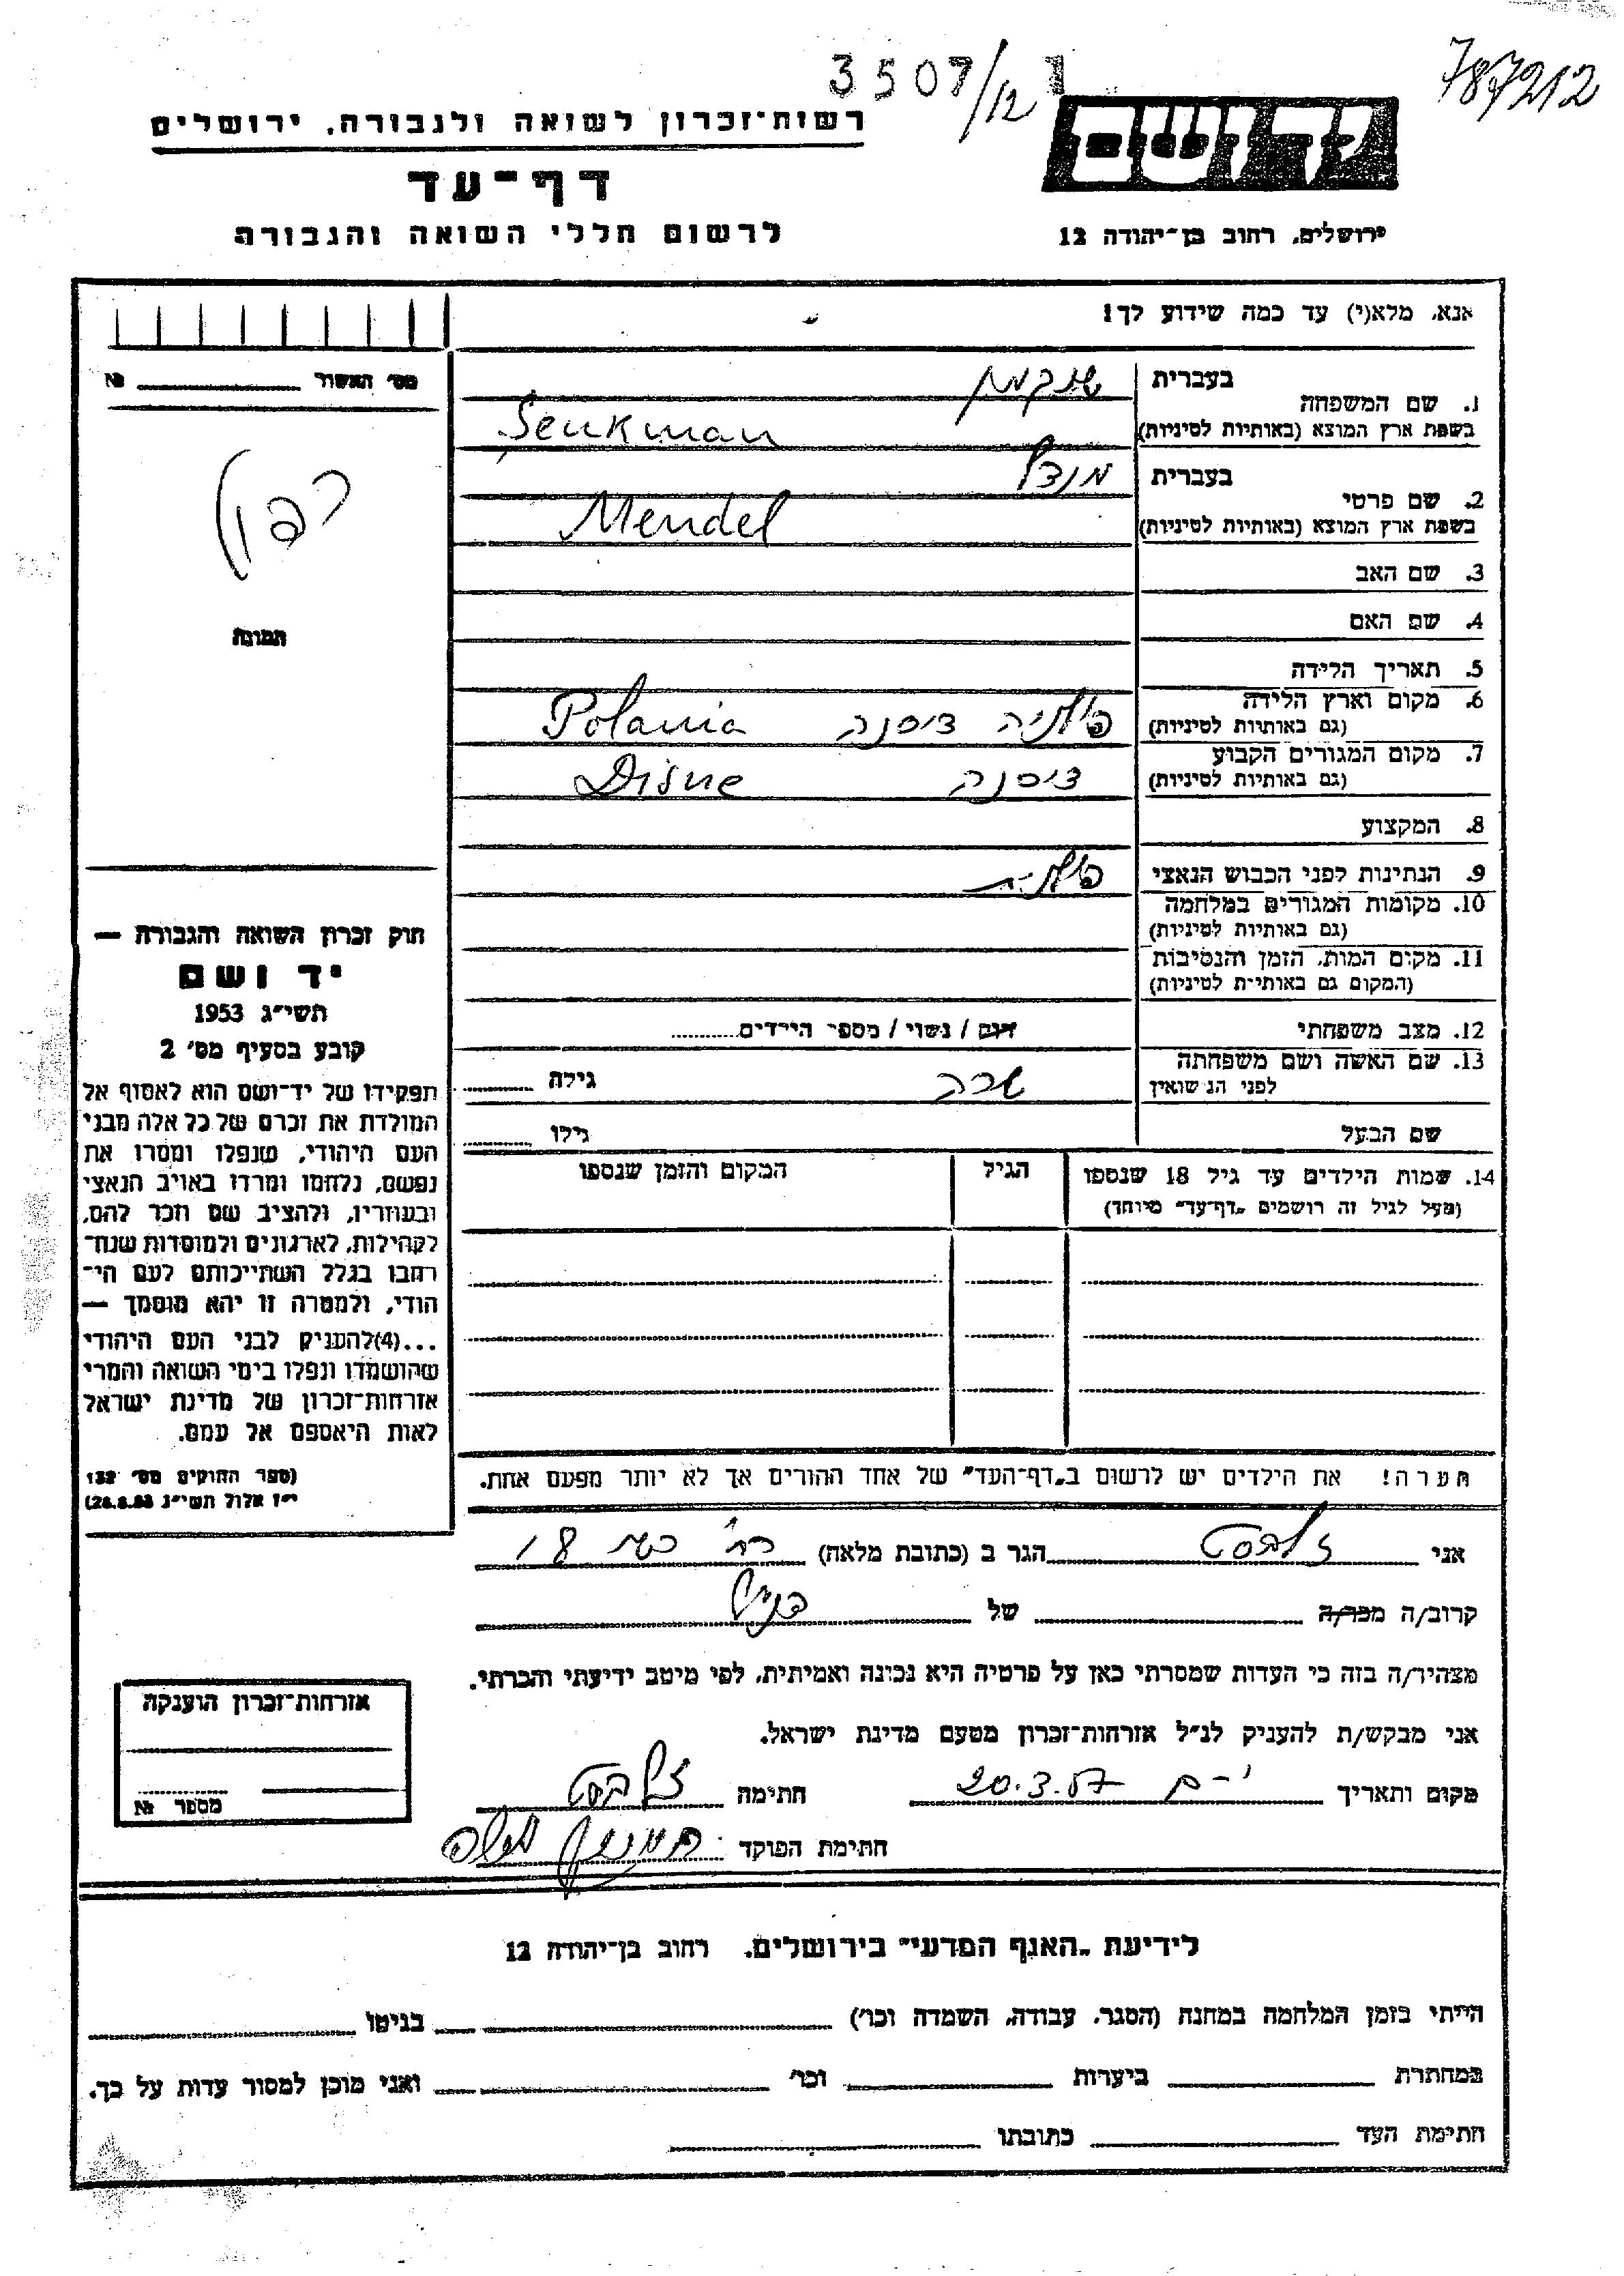 787212
3507/12 1
יד ושם
רשות־זכרון לשואה ולגבורה, ירושלים
דף־עד
לרשום חללי השואה והגבורה
ירושלים, רחוב בן־יהודה 12
אנא, מלא(י) עד כמה שידוע לך!
מס' האשור № 
בעברית שנקמן
1. שם המשפחה
בשפת ארץ המוצא (באותיות לטיניות) Šenkman
בעברית מנדל
2. שם פרטי
בשפת ארץ המוצא (באותיות לטיניות) Mendel
3. שם האב
4. שם האם
תמונה
5. תאריך הלידה
6. מקום וארץ הלידה
(גם באותיות לטיניות) דיסנה Polania
7. מקום המגורים הקבוע
(גם באותיות לטיניות) דיסנה Disne
8. המקצוע
9. הנתינות לפני הכבוש הנאצי
10. מקומות המגורים במלחמה
(גם באותיות לטיניות)
11. מקום המות, הזמן והנסיבות
(המקום גם באותיות לטיניות)
12. מצב משפחתי רווק / נשוי / מספר הילדים
13. שם האשה ושם משפחתה
לפני הנשואין שרה גילה
שם הבעל גילו
14. שמות הילדים עד גיל 18 שנספו הגיל המקום והזמן שנספו
(מעל לגיל זה רושמים „דף־עד" מיוחד)
חוק זכרון השואה והגבורה —
יד ושם
תשי"ג 1953
קובע בסעיף מס' 2
תפקידו של יד־ושם הוא לאסוף אל
המולדת את זכרם של כל אלה מבני
העם היהודי, שנפלו ומסרו את
נפשם, נלחמו ומרדו באויב הנאצי
ובעוזריו, ולהציב שם וזכר להם,
לקהילות, לארגונים ולמוסדות שנח־
רבו בגלל השתייכותם לעם הי־
הודי, ולמטרה זו יהא מוסמך —
...(4)להעניק לבני העם היהודי
שהושמדו ונפלו בימי השואה והמרי
אזרחות־זכרון של מדינת ישראל
לאות היאספם אל עמם.
(ספר החוקים מס' 132
י"ז אלול תשי"ג 28.8.53)
הערה! את הילדים יש לרשום ב„דף־העד" של אחד ההורים אך לא יותר מפעם אחת.
אני הגר ב (כתובת מלאה) 18
קרוב/ה מכר/ה של
מצהיר/ה בזה כי העדות שמסרתי כאן על פרטיה היא נכונה ואמיתית, לפי מיטב ידיעתי והכרתי.
אני מבקש/ת להעניק לנ"ל אזרחות־זכרון מטעם מדינת ישראל.
מקום ותאריך י-ם 20.3.57 חתימה
חתימת הפוקד
אזרחות־זכרון הוענקה
מספר №
לידיעת „האגף המדעי" בירושלים. רחוב בן־יהודה 12
הייתי בזמן המלחמה במחנה (הסגר, עבודה, השמדה וכו') בגיטו
במחתרת ביערות וכו' ואני מוכן למסור עדות על כך.
חתימת העד כתובתו